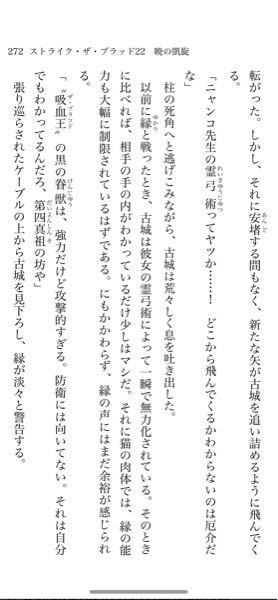 272 ストライク・ザ・ブラッド22 暁の凱旋
転がった。しかし、それに安堵する間もなく、新たな矢が古城を追い詰めるように飛んでく
る。
「ニャンコ先生の霊弓術ってヤツか……！ どこから飛んでくるかわからないのは厄介だ
な」
柱の死角へと逃げこみながら、古城は荒々しく息を吐き出した。
以前に縁と戦ったとき、古城は彼女の霊弓術によって一瞬で無力化されている。そのとき
に比べれば、相手の手の内がわかっているだけ少しはマシだ。それに猫の肉体では、縁の能
力も大幅に制限されているはずである。にもかかわらず、縁の声にはまだ余裕が感じられ
る。
「〝吸血王〟の黒の眷獣は、強力だけど攻撃的すぎる。防衛には向いてない。それは自分
でもわかってるんだろ、第四真祖の坊や」
張り巡らされたケーブルの上から古城を見下ろし、縁が淡々と警告する。